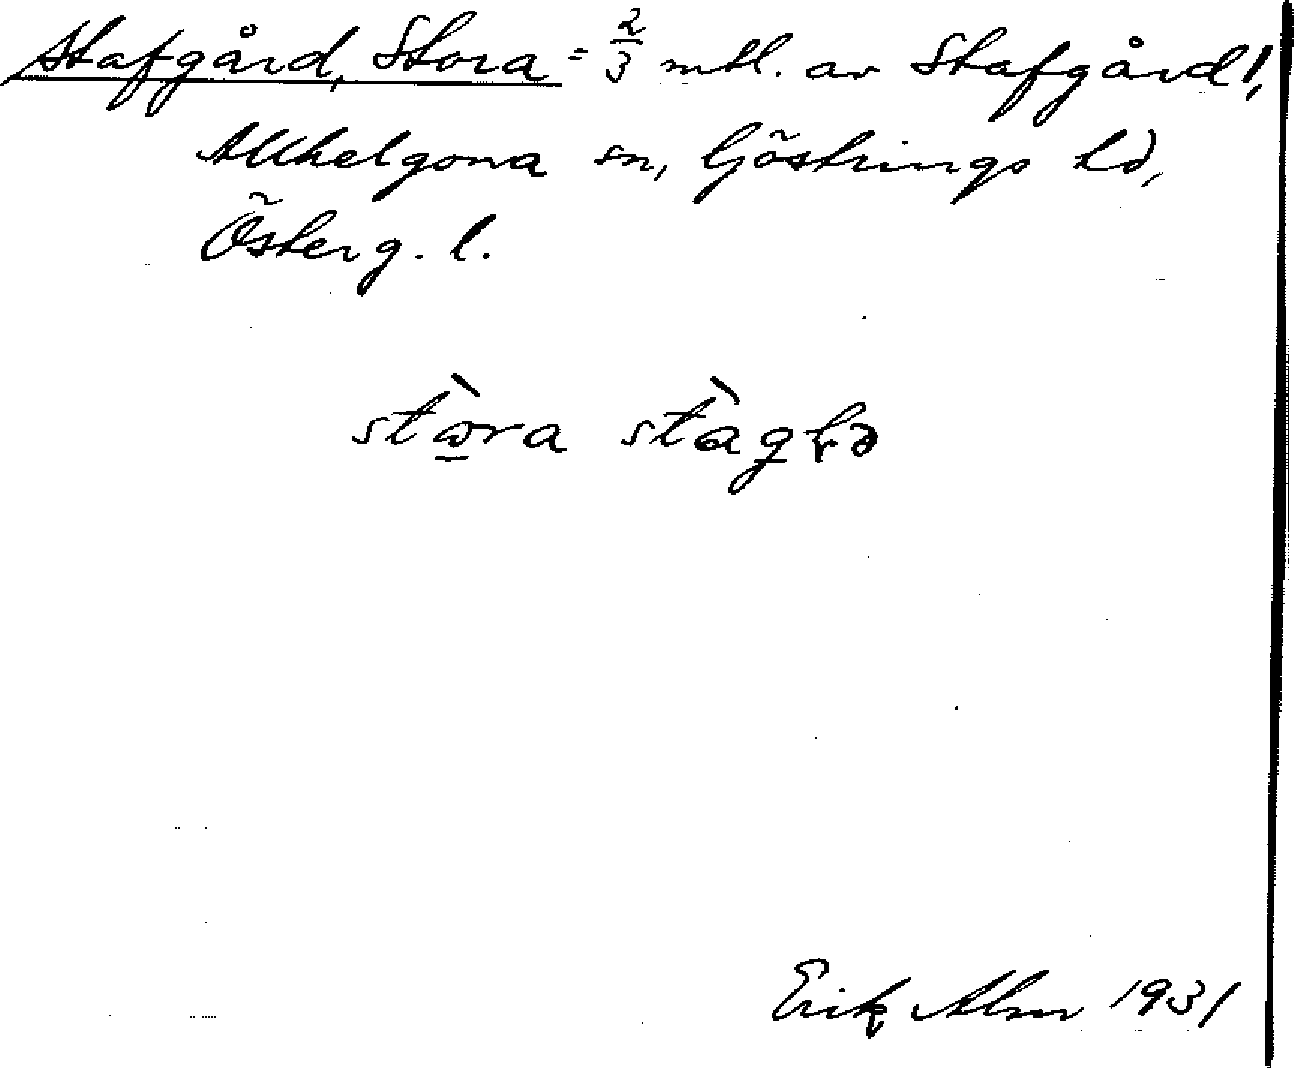 Stafgård, Stora = 2/3 mtl. av Stafgård!,
Allhelgona sn, Göstrings hd,
Österg. l.
Erik Alm 1931